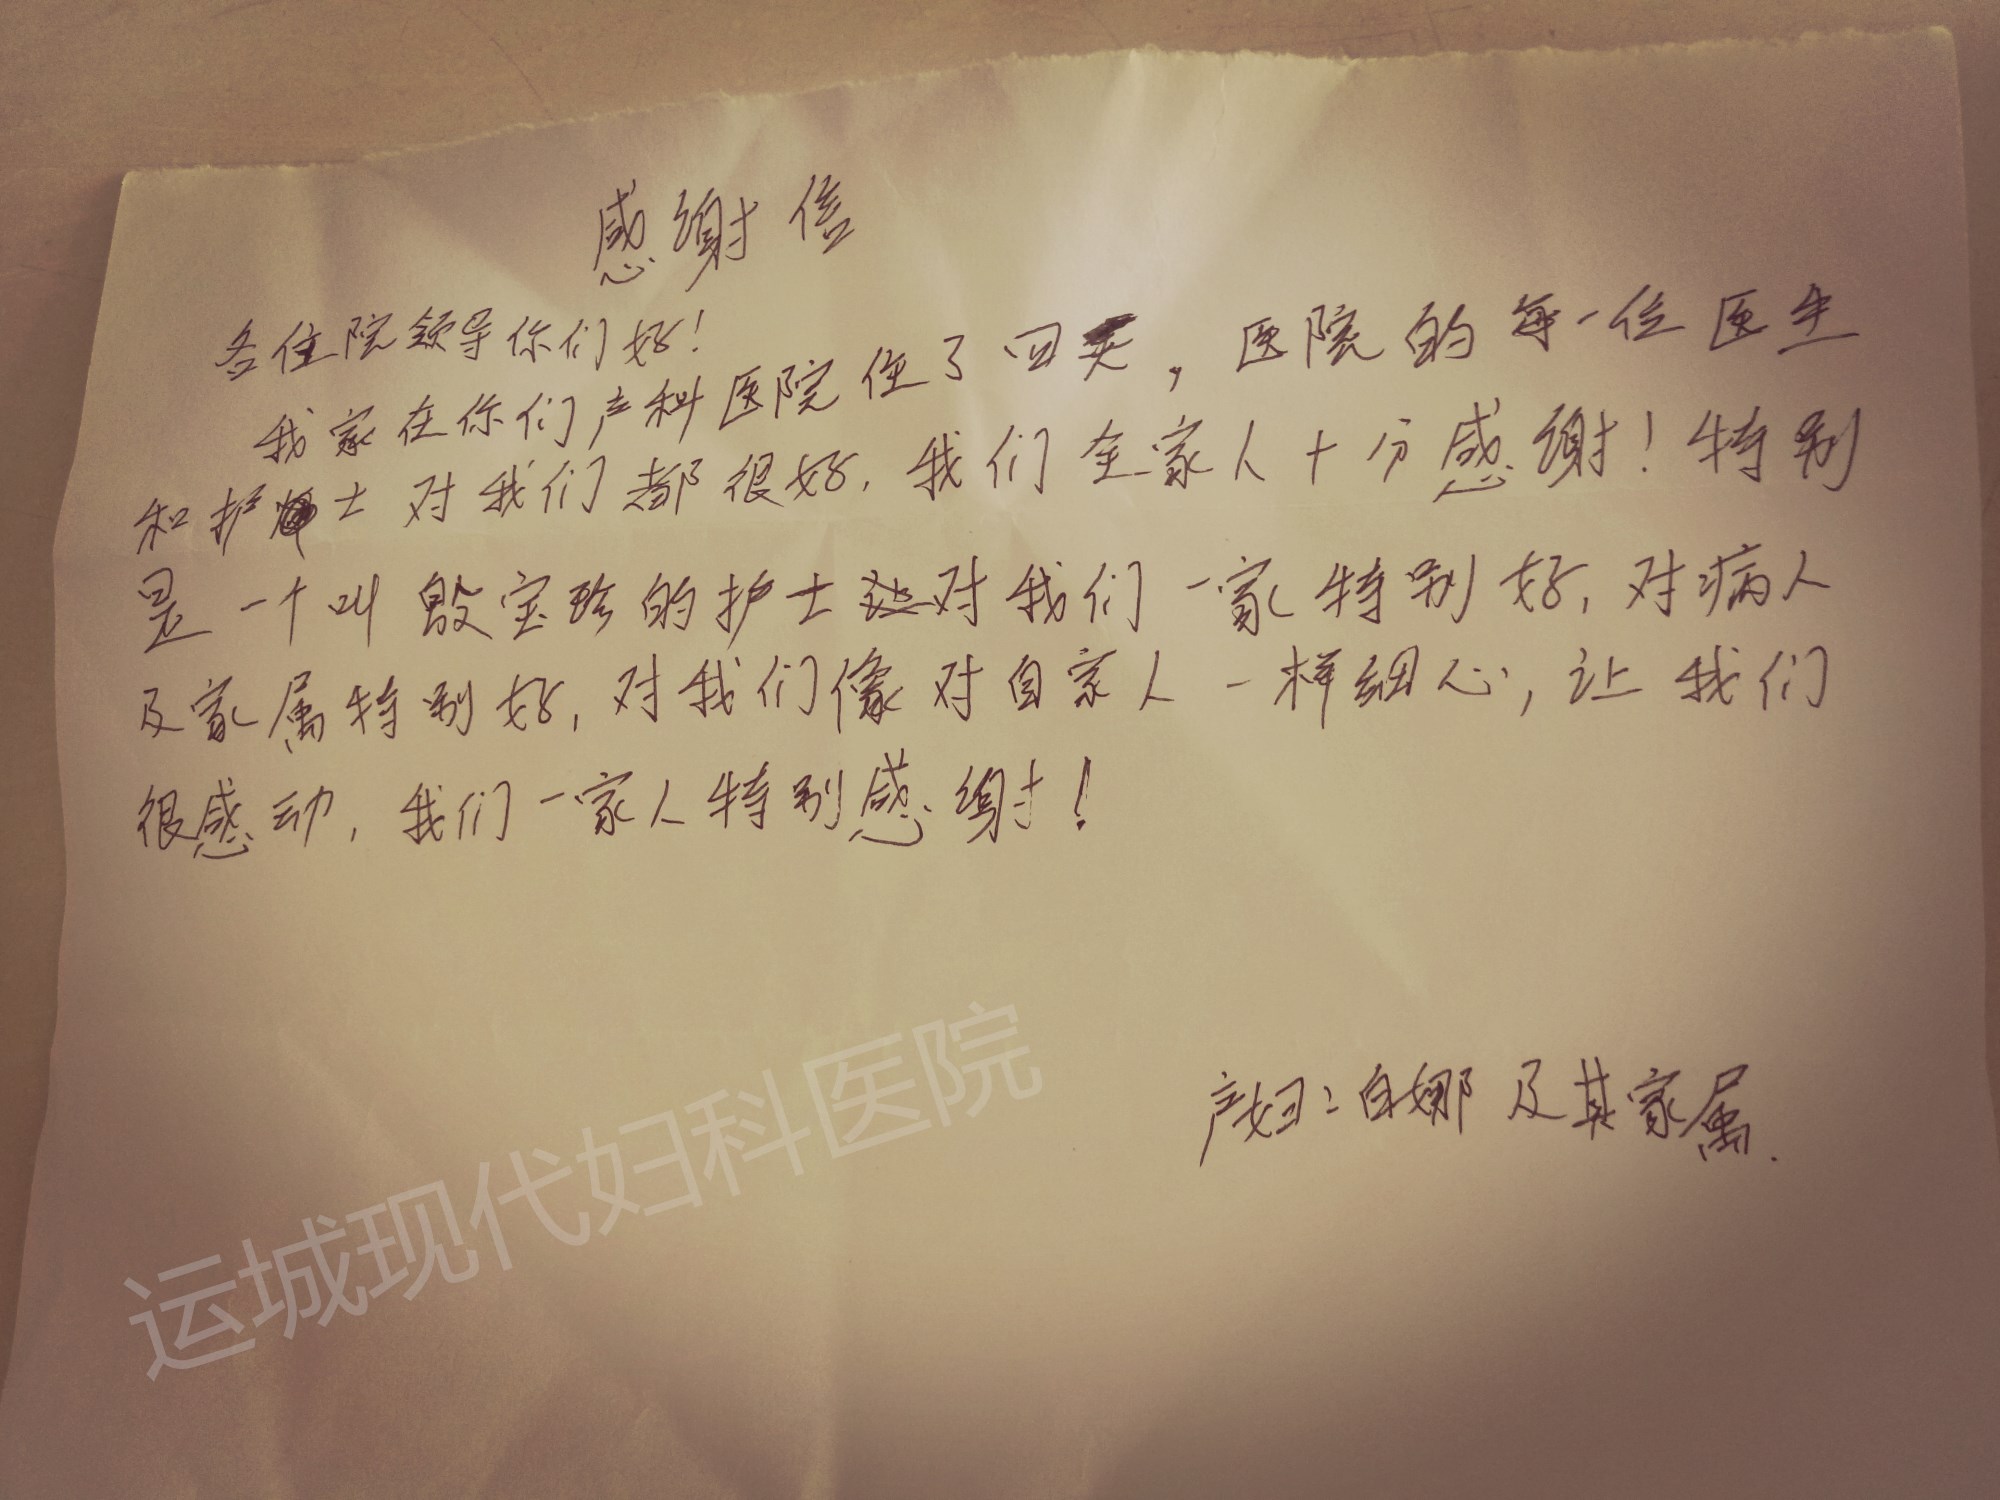 感谢信
各住院领导你们好！
我家在你们产科医院住了四天，医院的每一位医生
和护士对我们都很好，我们全家人十分感谢！特别
是一个叫殷宝珍的护士对我们一家特别好，对病人
及家属特别好，对我们像对自家人一样细心，让我们
很感动，我们一家人特别感谢！
产妇：白娜及其家属.
运城现代妇科医院